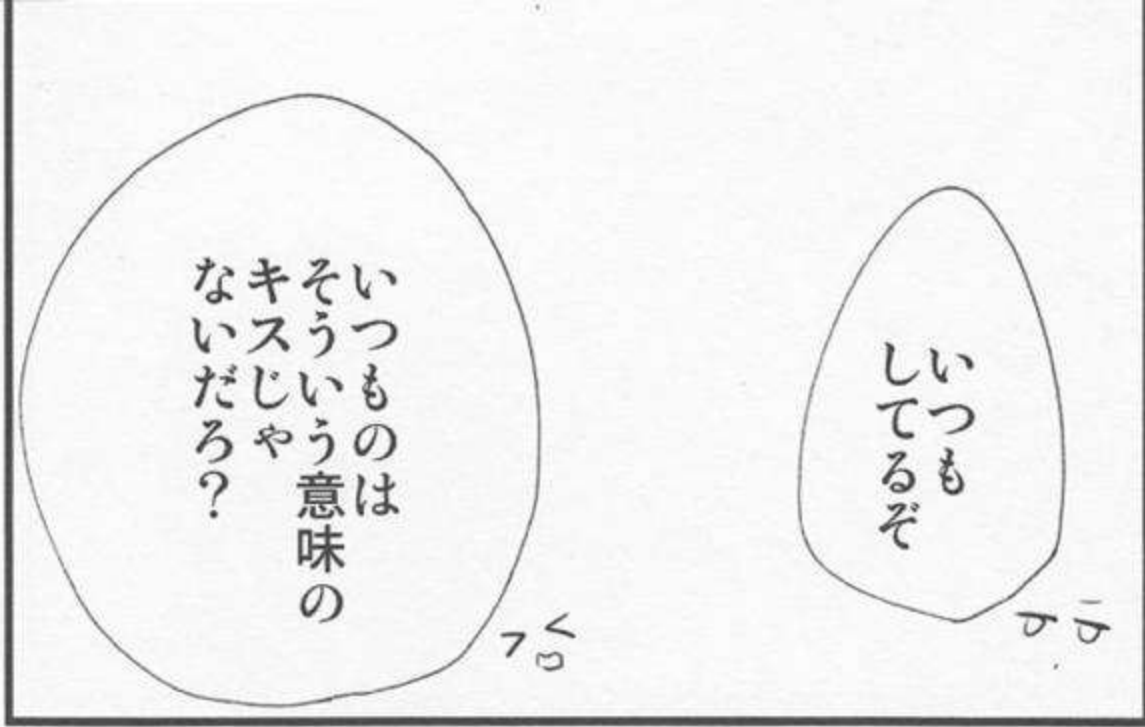 いつも
してるぞ
いつものは
そういう意味の
キスじゃ
ないだろ？